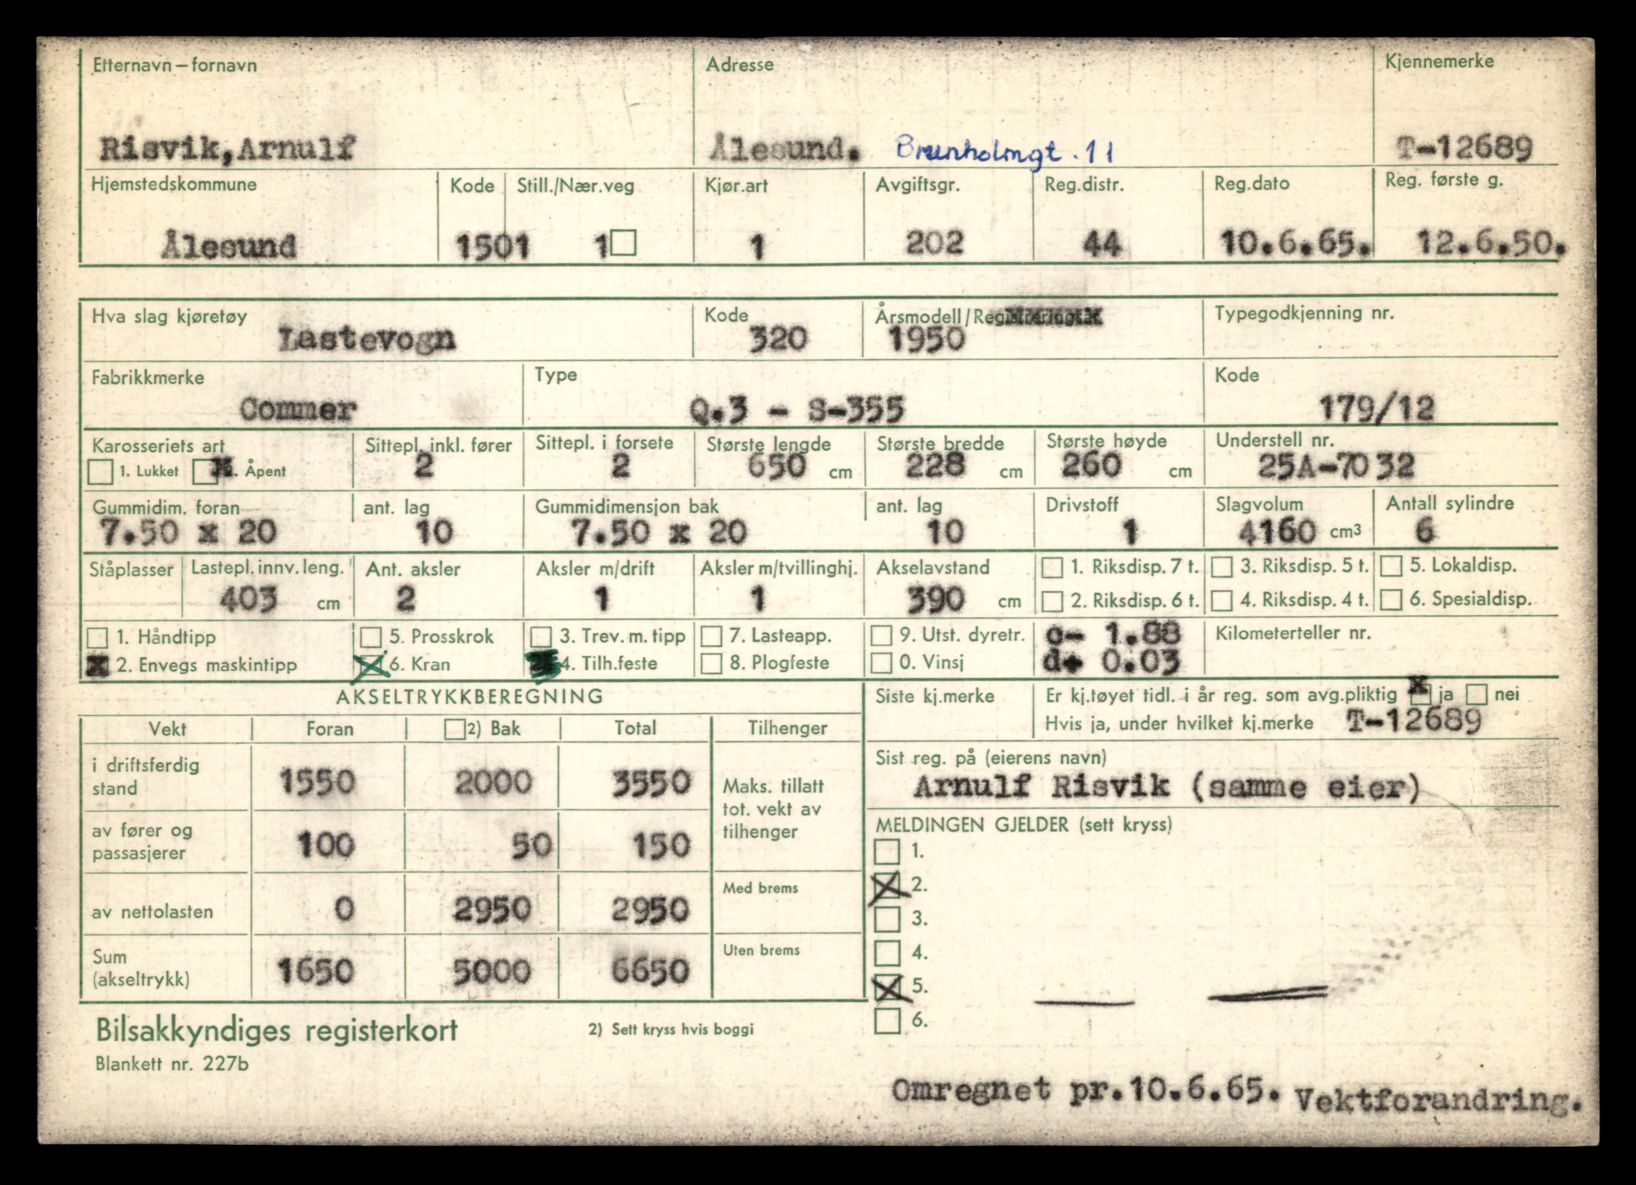 Etternavn – fornavn Adresse Kjennemerke
Risvik, Arnulf Ålesund. Brunholmgt. 11 T-12689
Hjemstedskommune Kode Still./Nær.veg Kjør.art Avgiftsgr. Reg.distr. Reg.dato Reg. første g.
Ålesund 1501 1 1 202 44 10.6.65. 12.6.50.
Hva slag kjøretøy Kode Årsmodell/Reg Typegodkjenning nr.
Lastevogn 320 1950
Fabrikkmerke Type Kode
Commer Q.3 - S-355 179/12
Karosseriets art Sittepl. inkl. fører Sittepl. i forsete Største lengde Største bredde Største høyde Understell nr.
1. Lukket X 2. Åpent 2 2 650 cm 228 cm 260 cm 25A-7032
Gummidim. foran ant. lag Gummidimensjon bak ant. lag Drivstoff Slagvolum Antall sylindre
7.50 x 20 10 7.50 x 20 10 1 4160 cm3 6
Ståplasser Lastepl. innv. leng. Ant. aksler Aksler m/drift Aksler m/tvillinghj. Akselavstand 1. Riksdisp. 7 t. 3. Riksdisp. 5 t. 5. Lokaldisp.
403 cm 2 1 1 390 cm 2. Riksdisp. 6 t. 4. Riksdisp. 4 t. 6. Spesialdisp.
1. Håndtipp 5. Prosskrok 3. Trev. m. tipp 7. Lasteapp. 9. Utst. dyretr. c- 1.88 Kilometerteller nr.
X 2. Envegs maskintipp X 6. Kran 4. Tilh.feste 8. Plogfeste 0. Vinsj d+ 0.03
AKSELTRYKKBEREGNING
Siste kj.merke Er kj.tøyet tidl. i år reg. som avg.pliktig X ja nei
Hvis ja, under hvilket kj.merke T-12689
Vekt Foran 2) Bak Total Tilhenger
Sist reg. på (eierens navn)
Arnulf Risvik (samme eier)
i driftsferdig stand 1550 2000 3550 Maks. tillatt tot. vekt av tilhenger
MELDINGEN GJELDER (sett kryss)
av fører og passasjerer 100 50 150
1.
X 2.
av nettolasten 0 2950 2950 Med brems
3.
4.
Sum (akseltrykk) 1650 5000 6650 Uten brems
X 5.
6.
Bilsakkyndiges registerkort 2) Sett kryss hvis boggi
Blankett nr. 227b
Omregnet pr.10.6.65. Vektforandring.